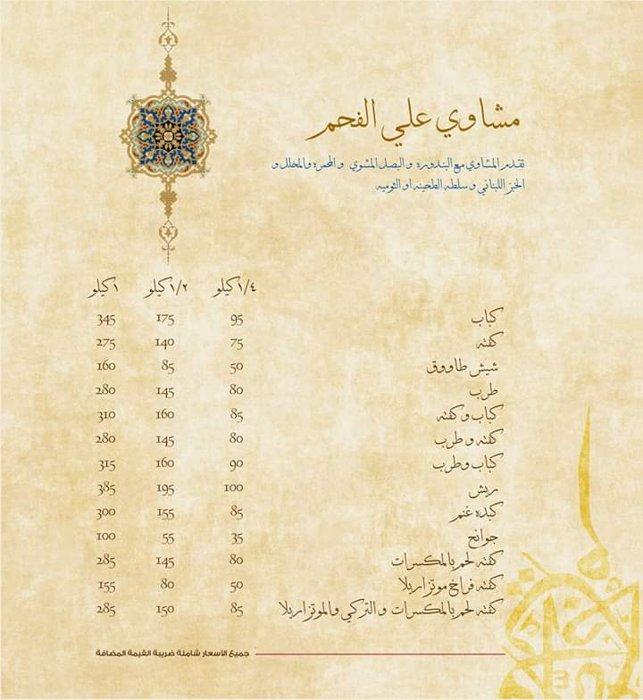 مشاوي علي الفحم
تقدم المشاوي مع البندورة والبصل المشوي والمحمره والمخلل و
الخبز اللبناني و سلطه الطحينه او الثوميه
١/٤ كيلو ١/٢ كيلو ١ كيلو
كباب 95 175 345
كفته 75 140 275
شيش طاووق 50 85 160
طرب 80 145 280
كباب وكفته 85 160 310
كفته و طرب 80 145 280
كباب وطرب 90 160 315
ريش 100 195 385
كبده غنم 85 155 300
جوانح 35 55 100
كفته لحم بالمكسرات 80 145 285
كفته فراخ موتزاريلا 50 80 155
كفته لحم بالمكسرات و التركي والموتزاريلا 85 150 285
جميع الأسعار شاملة ضريبة القيمة المضافة